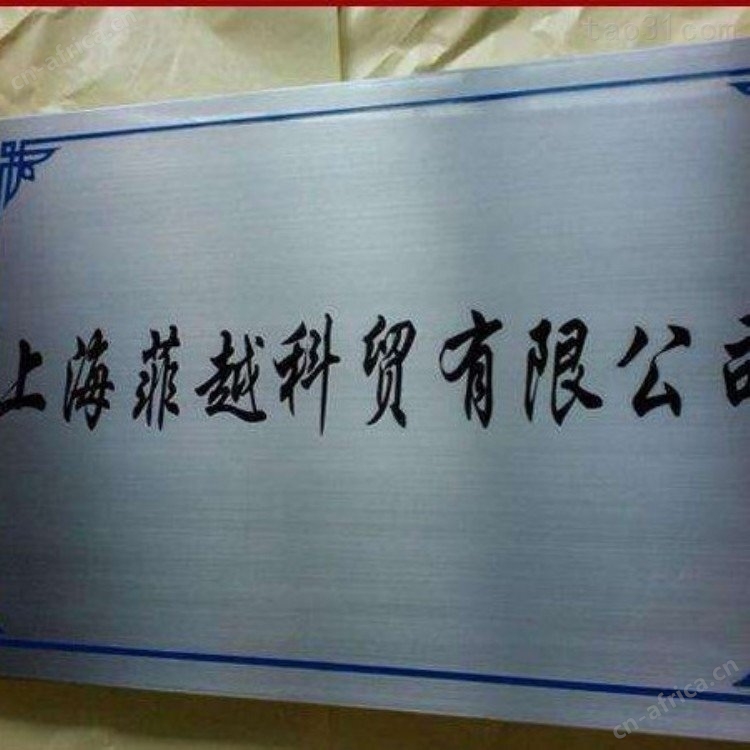 上海菲越科贸有限公司
cn-africa.cn